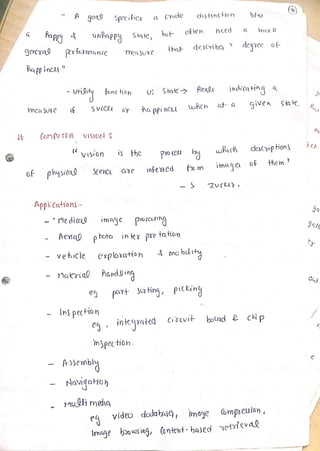 4
- A goal specifies a crude distinction b/w
a happy & unhappy state, but often need a more
general performance measure that describes "degree of
happiness"
- utility function U: State → Reals indicating a
measure of success or happiness when at a given state.
COMPUTER VISION :
"Vision is the process by which descriptions
of physical scenes are inferred from images of them"
- S Zucker.
Applications -
- Medical image processing
- Aerial photo interpretation
- vehicle exploration & mobility
- Material handling
eg part sorting, picking
- Inspection
eg. integrated circuit board & chip
inspection.
- Assembly
- Navigation
- multimedia
eg video databases, image compression,
image browsing, content-based retrieval